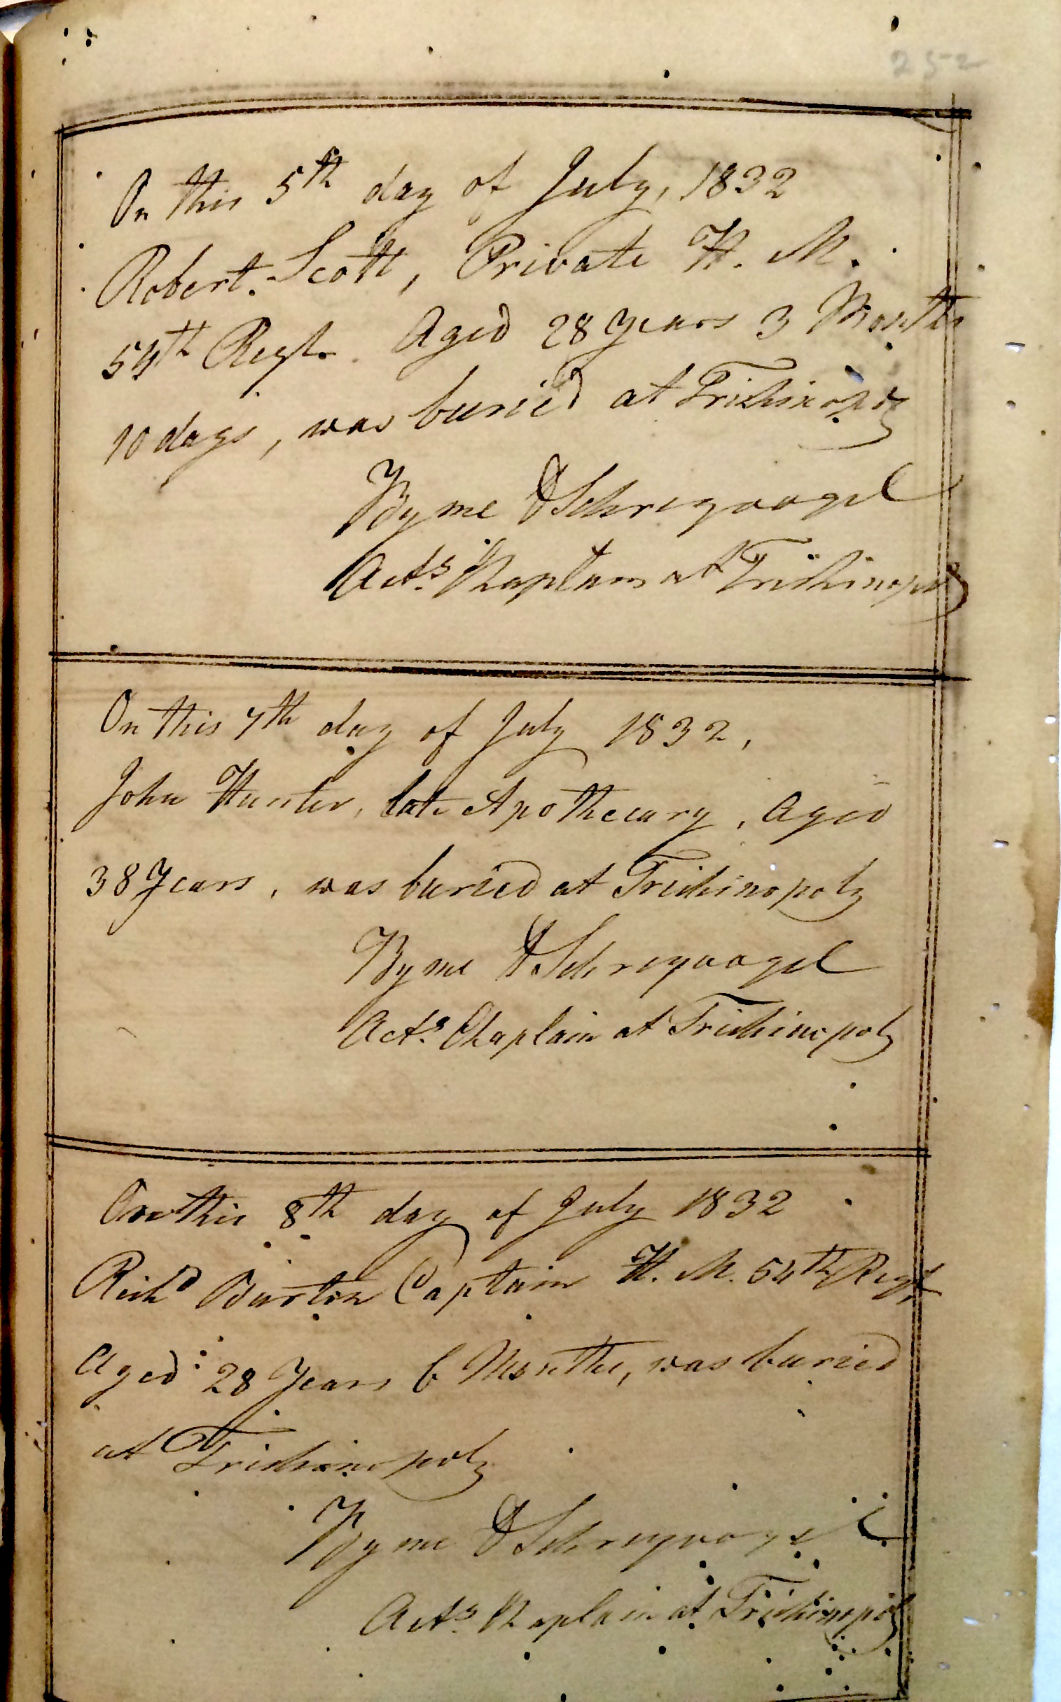 252
On this 5th day of July, 1832
Robert Scott, Private H. M.
54th Regt. Aged 28 Years 3 Months
10 days, was buried at Trichinopoly
By me D Schreyvogel
Actg. Chaplain at Trichinopoly
On this 7th day of July 1832,
John Hunter, late Apothecary, Aged
38 Years, was buried at Trichinopoly
By me D Schreyvogel
Actg. Chaplain at Trichinopoly
On this 8th day of July 1832
Richd Burton Captain H. M. 54th Regt
Aged 28 Years 6 Months, was buried
at Trichinopoly
By me D Schreyvogel
Actg. Chaplain at Trichinopoly